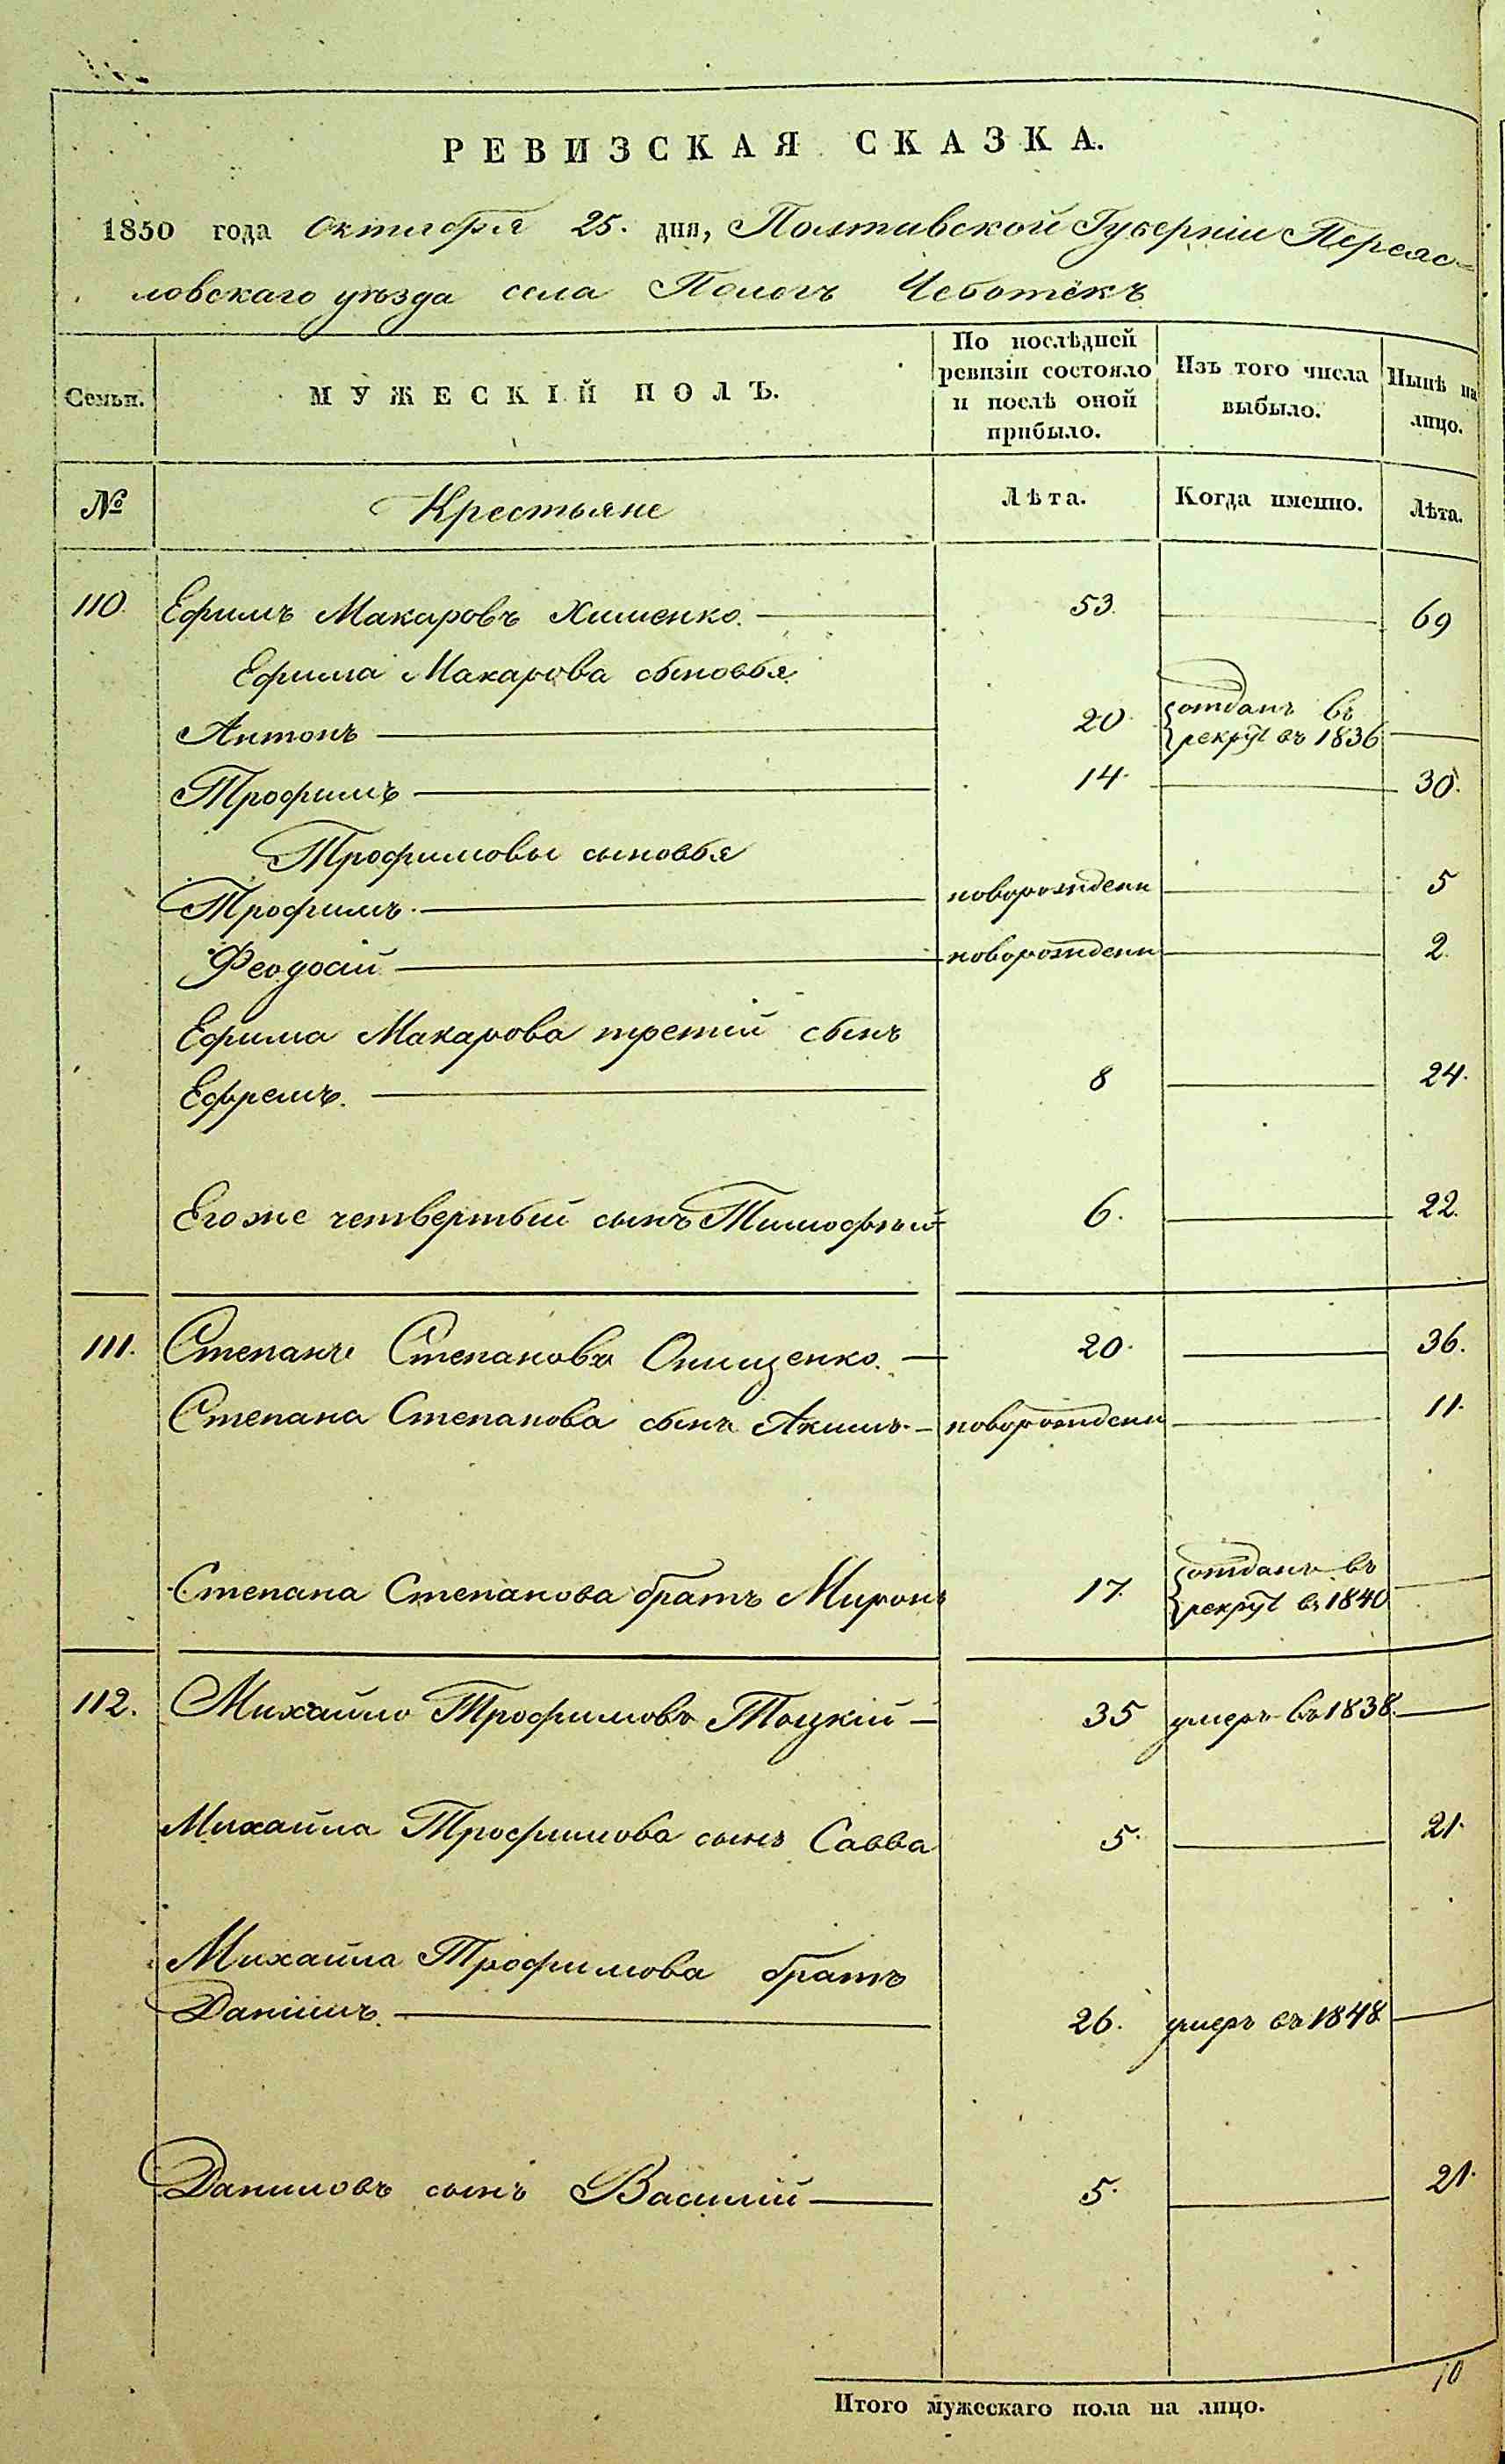 РЕВИЗСКАЯ СКАЗКА.
1850 года Октября 25. дня, Полтавской Губерніи Переяс-
ловскаго уѣзда села Пологъ Чеботёкъ
Семьи. МУЖЕСКІЙ ПОЛЪ. По послѣдней ревизіи состояло и послѣ оной прибыло. Изъ того числа выбыло. Нынѣ на лицо.
№ Крестьяне Лѣта. Когда именно. Лѣта.
110. Ефимъ Макаровъ Хименко. 53. 69
Ефима Макарова сыновья
Антонъ 20. отданъ въ рекрут въ 1836
Трофимъ 14. 30.
Трофимовы сыновья
Трофимъ. новорожденн 5
Феодосій новорожденн 2.
Ефима Макарова третій сынъ
Ефремъ. 8 24.
Егоже четвертый сынъ Тимофѣй 6. 22.
111. Степанъ Степановъ Онищенко. 20. 36.
Степана Степанова сынъ Акимъ. новорожденн 11.
Степана Степанова братъ Миронъ 17. отданъ въ рекрут въ 1840
112. Михайло Трофимовъ Тоцкій 35 умеръ въ 1838.
Михайла Трофимова сынъ Савва 5. 21.
Михайла Трофимова братъ
Даніилъ. 26. умеръ въ 1848
Даниловъ сынъ Василій 5. 21.
10
Итого мужескаго пола на лицо.